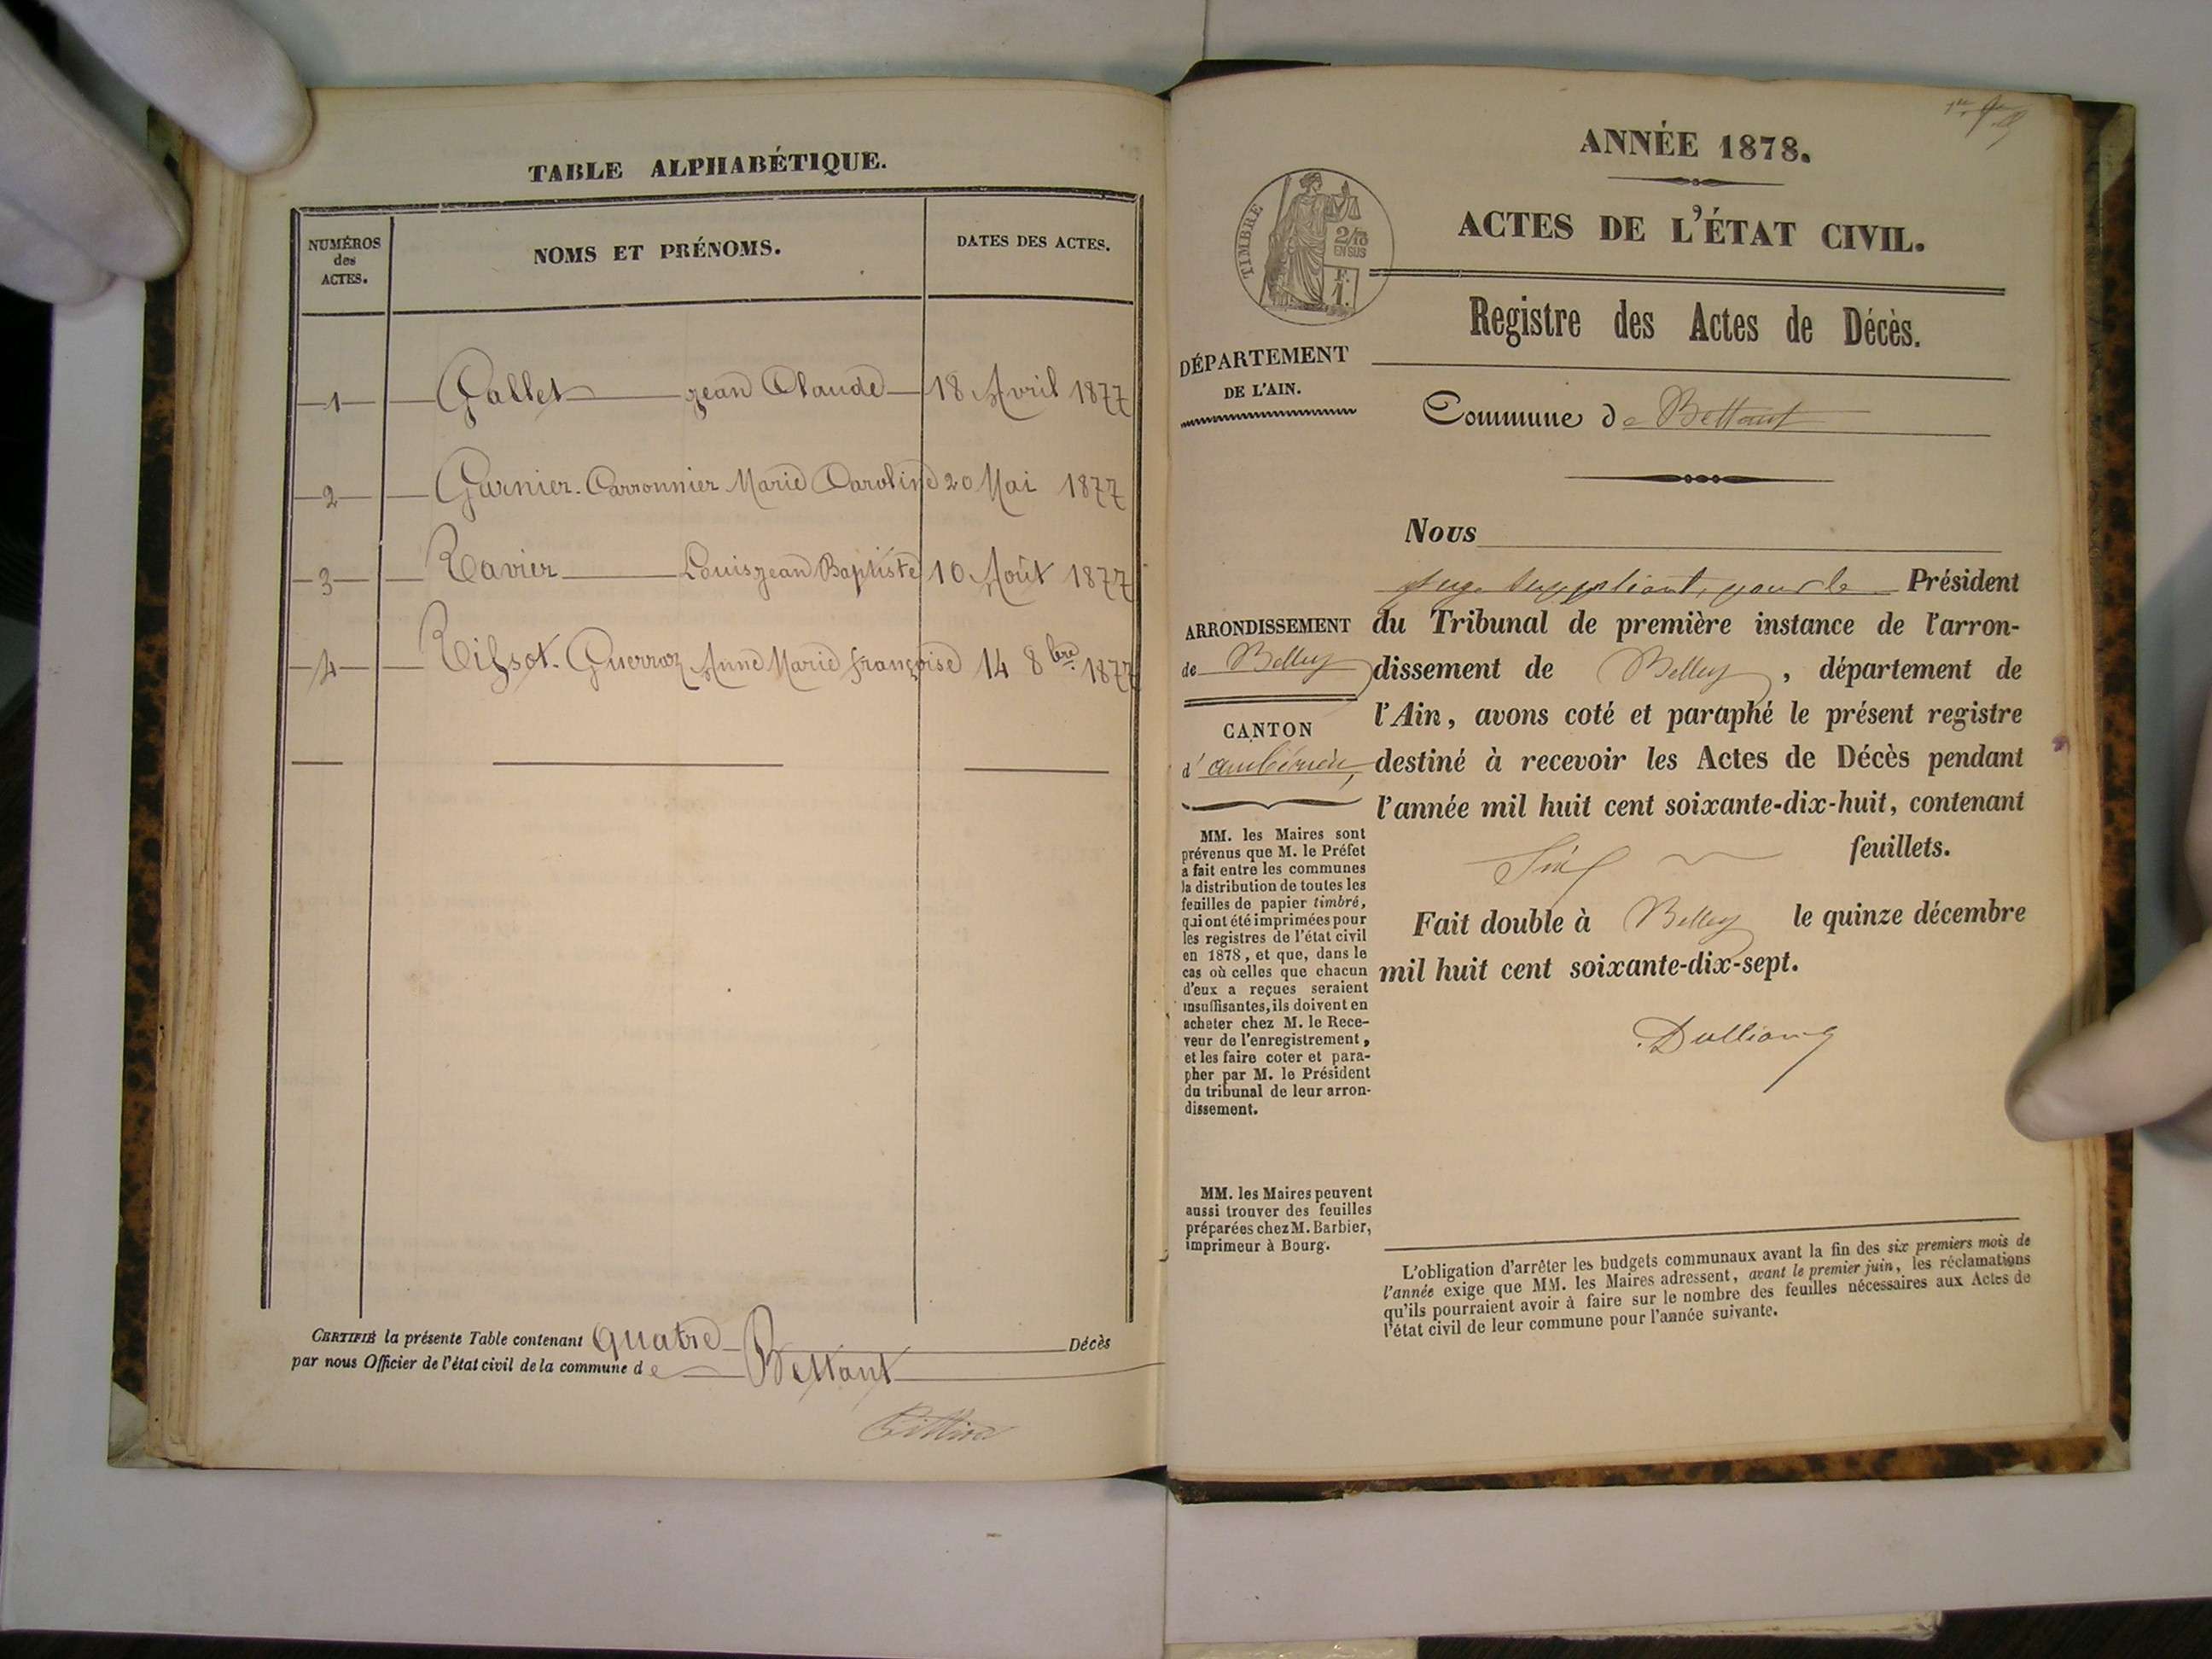 TABLE ALPHABÉTIQUE.
NUMÉROS
des
ACTES.
NOMS ET PRÉNOMS.
DATES DES ACTES.
1 Gallet jean Claude 18 Avril 1877
2 Garnier. Carronnier Marie Caroline 20 Mai 1877
3 Ravier Louis jean Baptiste 10 Août 1877
4 Rissot. Guerraz Anne Marie françoise 14 8bre. 1877
CERTIFIÉ la présente Table contenant Quatre Décès
par nous Officier de l'état civil de la commune de Bettant
ANNÉE 1878.
ACTES DE L'ÉTAT CIVIL.
TIMBRE
2/10
EN SUS
F.
1.
Registre des Actes de Décès.
DÉPARTEMENT
DE L'AIN.
Commune de Bettant
Nous
juge suppléant, pour le Président
du Tribunal de première instance de l'arron-
dissement de Belley, département de
l'Ain, avons coté et paraphé le présent registre
destiné à recevoir les Actes de Décès pendant
l'année mil huit cent soixante-dix-huit, contenant
Six feuillets.
Fait double à Belley le quinze décembre
mil huit cent soixante-dix-sept.
ARRONDISSEMENT
de Belley
CANTON
d'ambérieu
MM. les Maires sont
prévenus que M. le Préfet
a fait entre les communes
la distribution de toutes les
feuilles de papier timbré,
qui ont été imprimées pour
les registres de l'état civil
en 1878, et que, dans le
cas où celles que chacun
d'eux a reçues seraient
insuffisantes, ils doivent en
acheter chez M. le Rece-
veur de l'enregistrement,
et les faire coter et para-
pher par M. le Président
du tribunal de leur arron-
dissement.
MM. les Maires peuvent
aussi trouver des feuilles
préparées chez M. Barbier,
imprimeur à Bourg.
L'obligation d'arrêter les budgets communaux avant la fin des six premiers mois de
l'année exige que MM. les Maires adressent, avant le premier juin, les réclamations
qu'ils pourraient avoir à faire sur le nombre des feuilles nécessaires aux Actes de
l'état civil de leur commune pour l'année suivante.